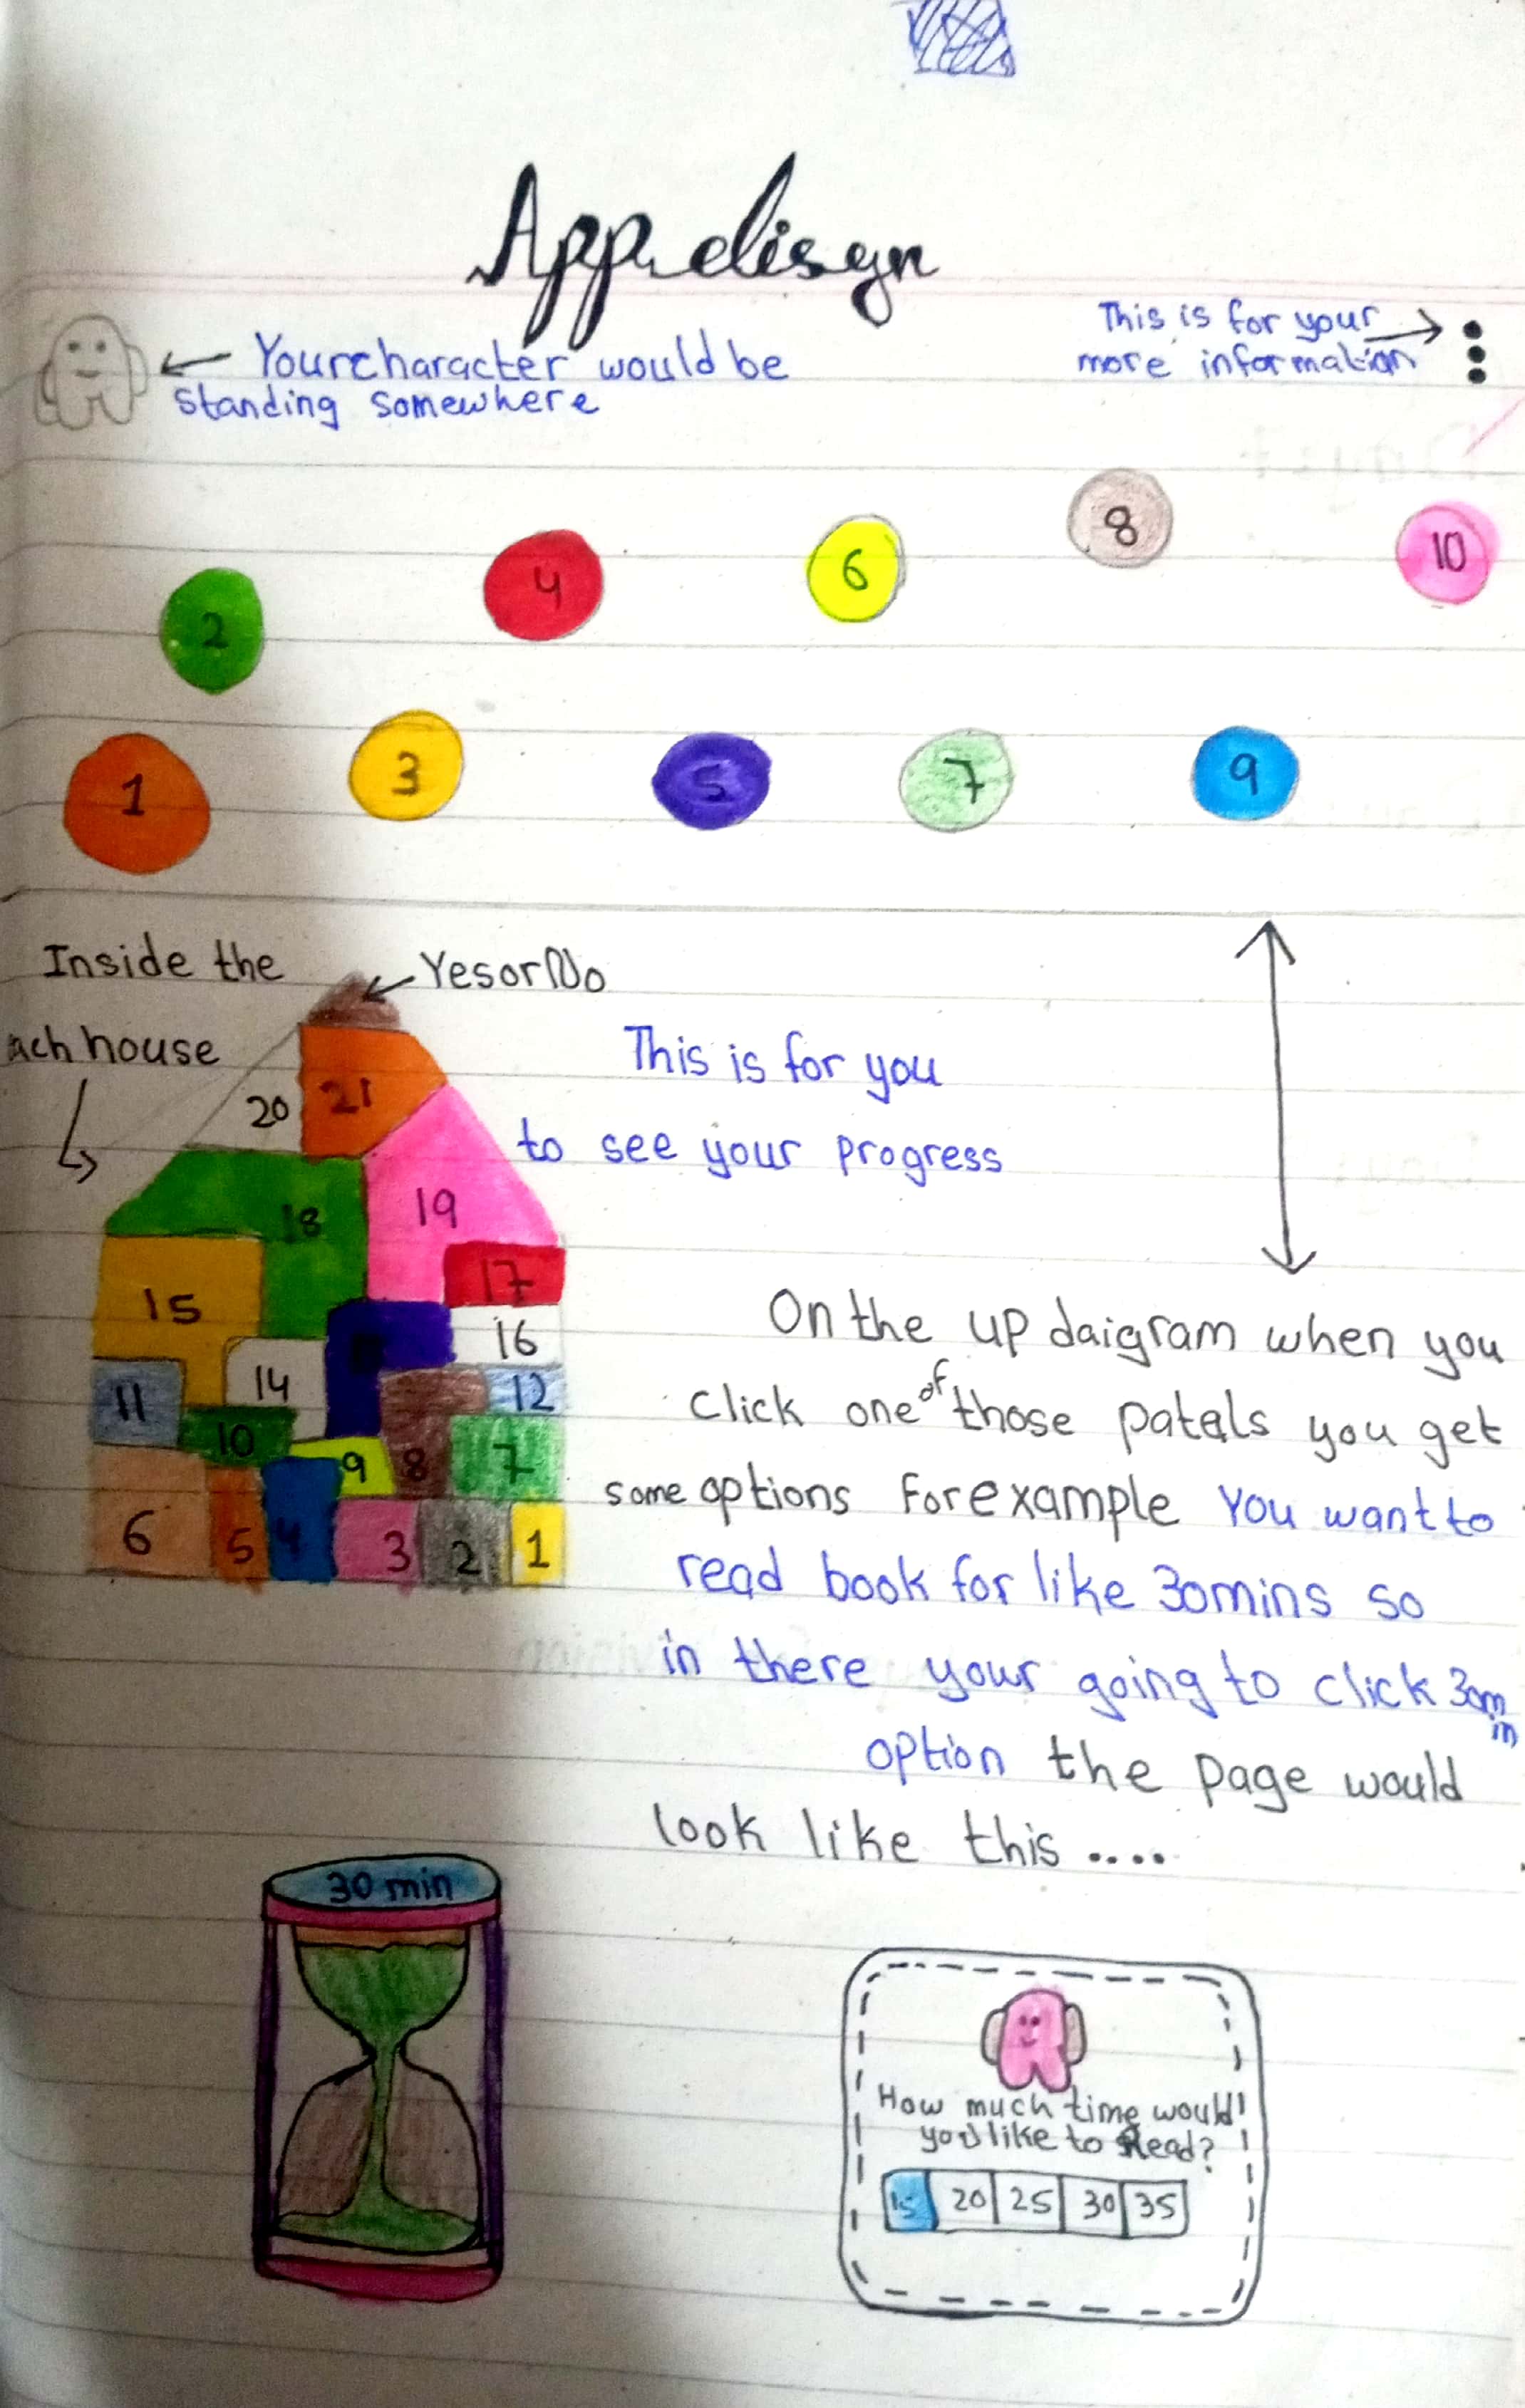 App disgn
Your character would be
standing somewhere
This is for your
more information
8
10
6
4
2
3
1
5
7
9
Inside the
Yes or No
ach house
This is for you
to see your progress
20
21
18
19
17
15
16
14
12
11
10
9
8
7
6
5
4
3
2
1
On the up daigram when you
click one of those patals you get
some options For example You want to
read book for like 30mins so
in there your going to click 30min
option the page would
look like this ....
30 min
How much time would
you like to Read?
15 20 25 30 35